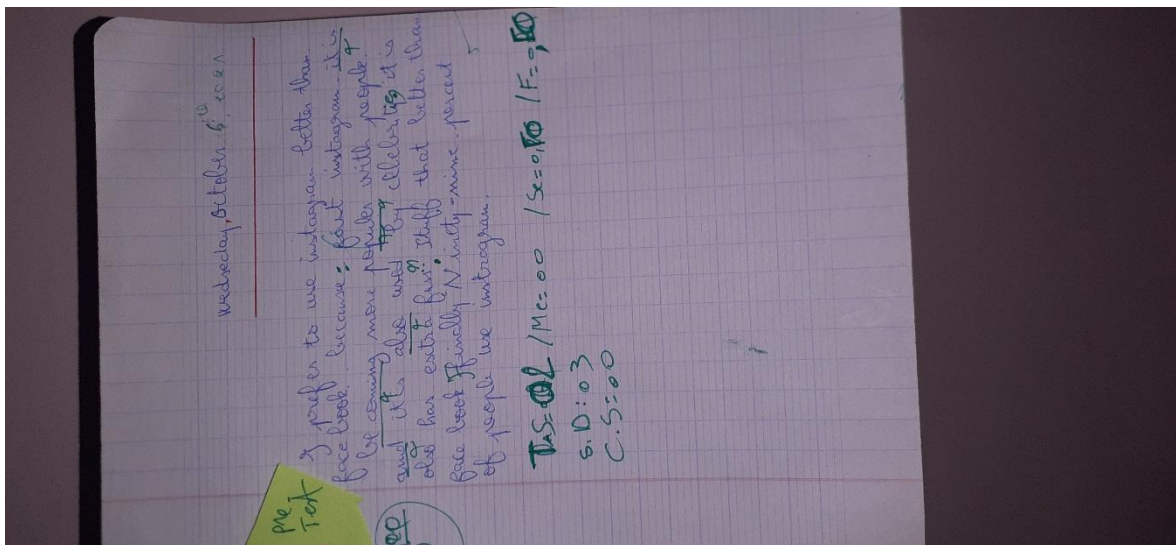 Wednesday, October 6th, 2021
Pre
Test
I prefer to use instagram better than
face book. because: first instagram it is
be coming more populer with people.
and it is also used by celebrities it is
also has extra fun. Stuff that better than
face book finally Ninety-nine percent
of people use instragram.
/Mc=00 /Sc=0, /F=0,
S.D:03
C.S=00